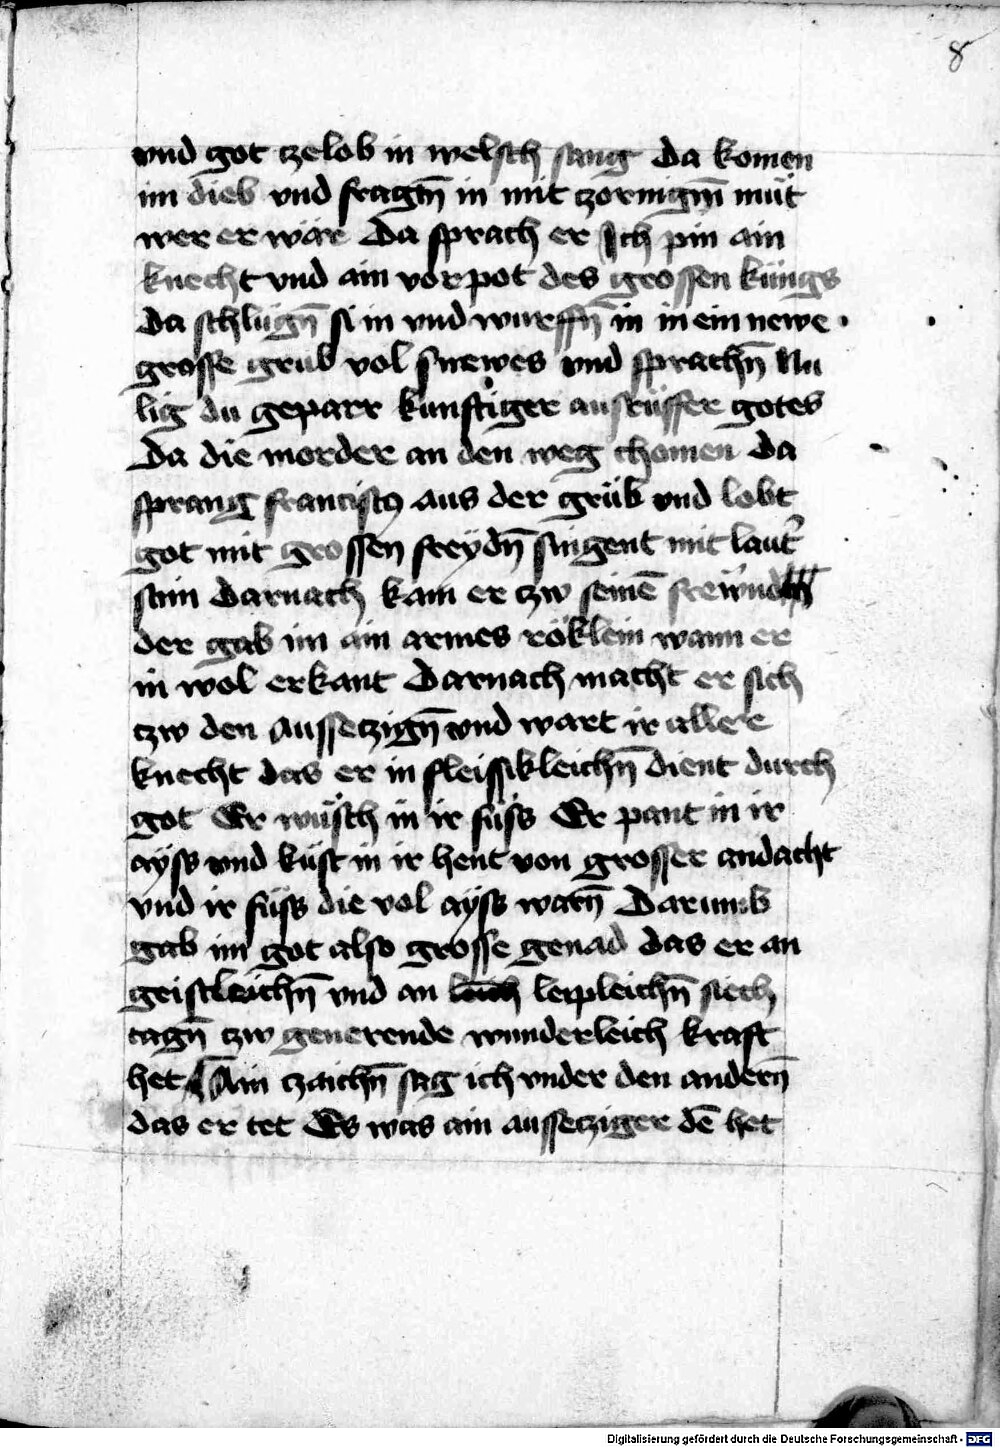 8
vnd got ze lob in welsch sang Da komen
im dieb vnd fragtn̄ in mit zornigm̄ müt
wer er wär Da sprach er Ich pin ain
knecht vnd ain vorpot des grossen küngs
Da schlügn̄ si in vnd wurffn̄ in in ein newe
grosse grub vol snewes vnd sprachn̄ Nu
lig du geparr kunftiger ausrüffer gotes
Da die morder an den weg chomen Da
sprang franciscꝯ aus der grüb vnd lobt
got mit grossen freydn̄ singent mit laut̓
stim Darnach kam er zw seinē
der gab im ain armes röklein wann er
in wol erkant Darnach macht er sich
tzw den aussetzign̄ vnd wart ir aller
knecht das er in fleissikleichn̄ dient durch
got Er wüsch in ir füss Er pant in ir
ayss vnd küst in ir hent von grosser andacht
vnd ir füss die vol ayss warn̄ Darumb
gab im got also grosse genad das er an
geistleichn̄ vnd an leipleichn̄ siech
tagn̄ tzw generende wunderleich kraft
het Ain tzaichn̄ sag ich vnder den andern̄
das er tet Es was ain aussetziger dē het
Digitalisierung gefördert durch die Deutsche Forschungsgemeinschaft - DFG